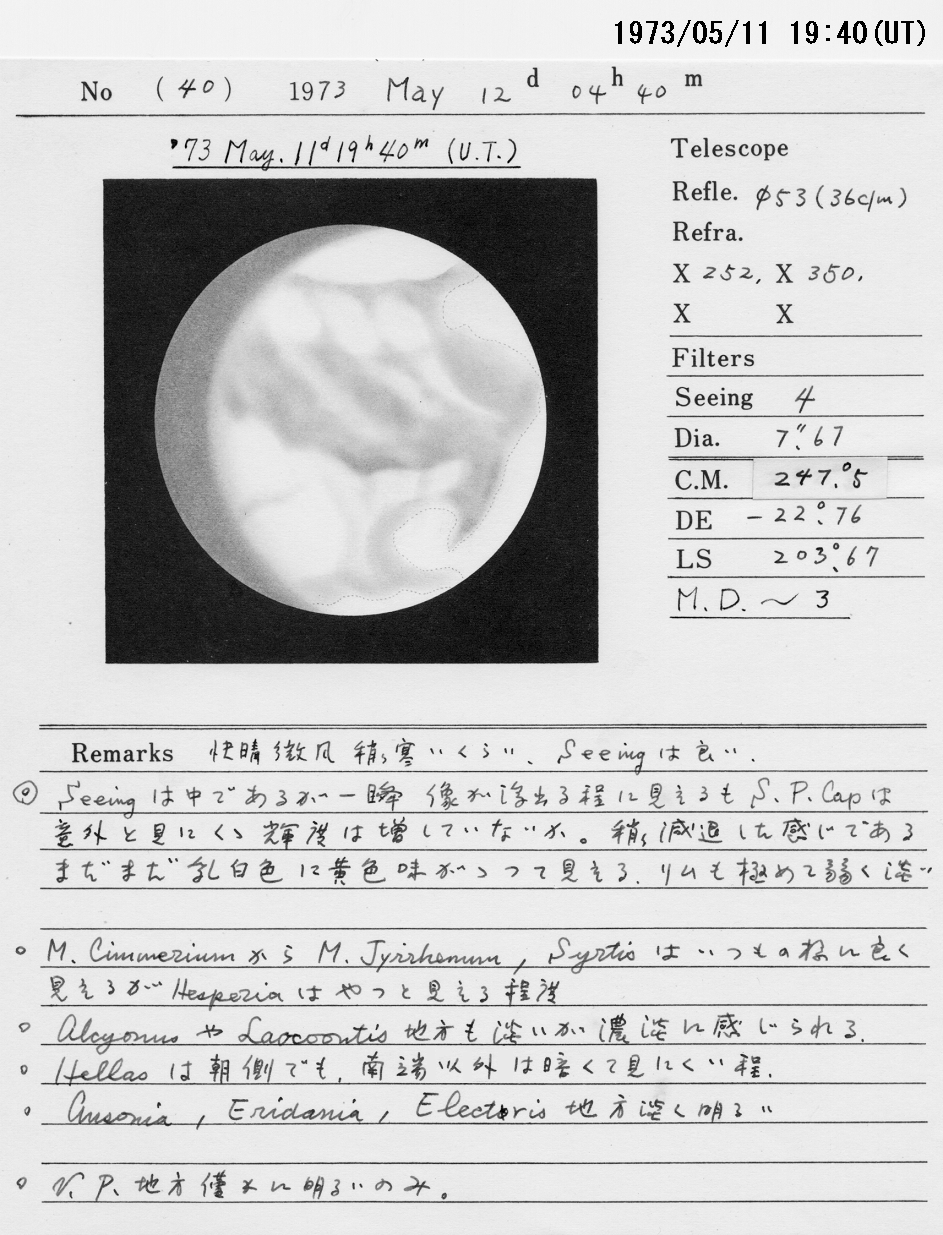 1973/05/11 19:40(UT)
No (40) 1973 May 12 d 04 h 40 m
'73 May. 11d 19h 40m (U.T.)
Telescope
Refle. φ53 (36c/m)
Refra.
X 252, X 350.
X X
Filters
Seeing 4
Dia. 7".67
C.M. 247.°5
DE -22.°76
LS 203.°67
M.D. ~ 3
Remarks 快晴 微風 稍々寒いくらい、Seeingは良い.
◎ Seeingは中であるが一瞬 像が浮出る程に見えるも S.P.Capは
意外と見にくく 輝度は増していないか。稍々減退した感じである
まだまだ乳白色に黄色味がゝって見える. リムも極めて弱く淡い
○ M. Cimmeriumから M. Tyrrhenum, Syrtisはいつもの様に良く
見えるが Hesperiaはやっと見える程度
○ Alcyonusや Laocoontis 地方も淡いが濃淡に感じられる.
○ Hellasは朝側でも、南端以外は暗くて見にくい程.
○ Ausonia, Eridania, Electoris 地方淡く明るい
○ N.P.地方僅かに明るいのみ。